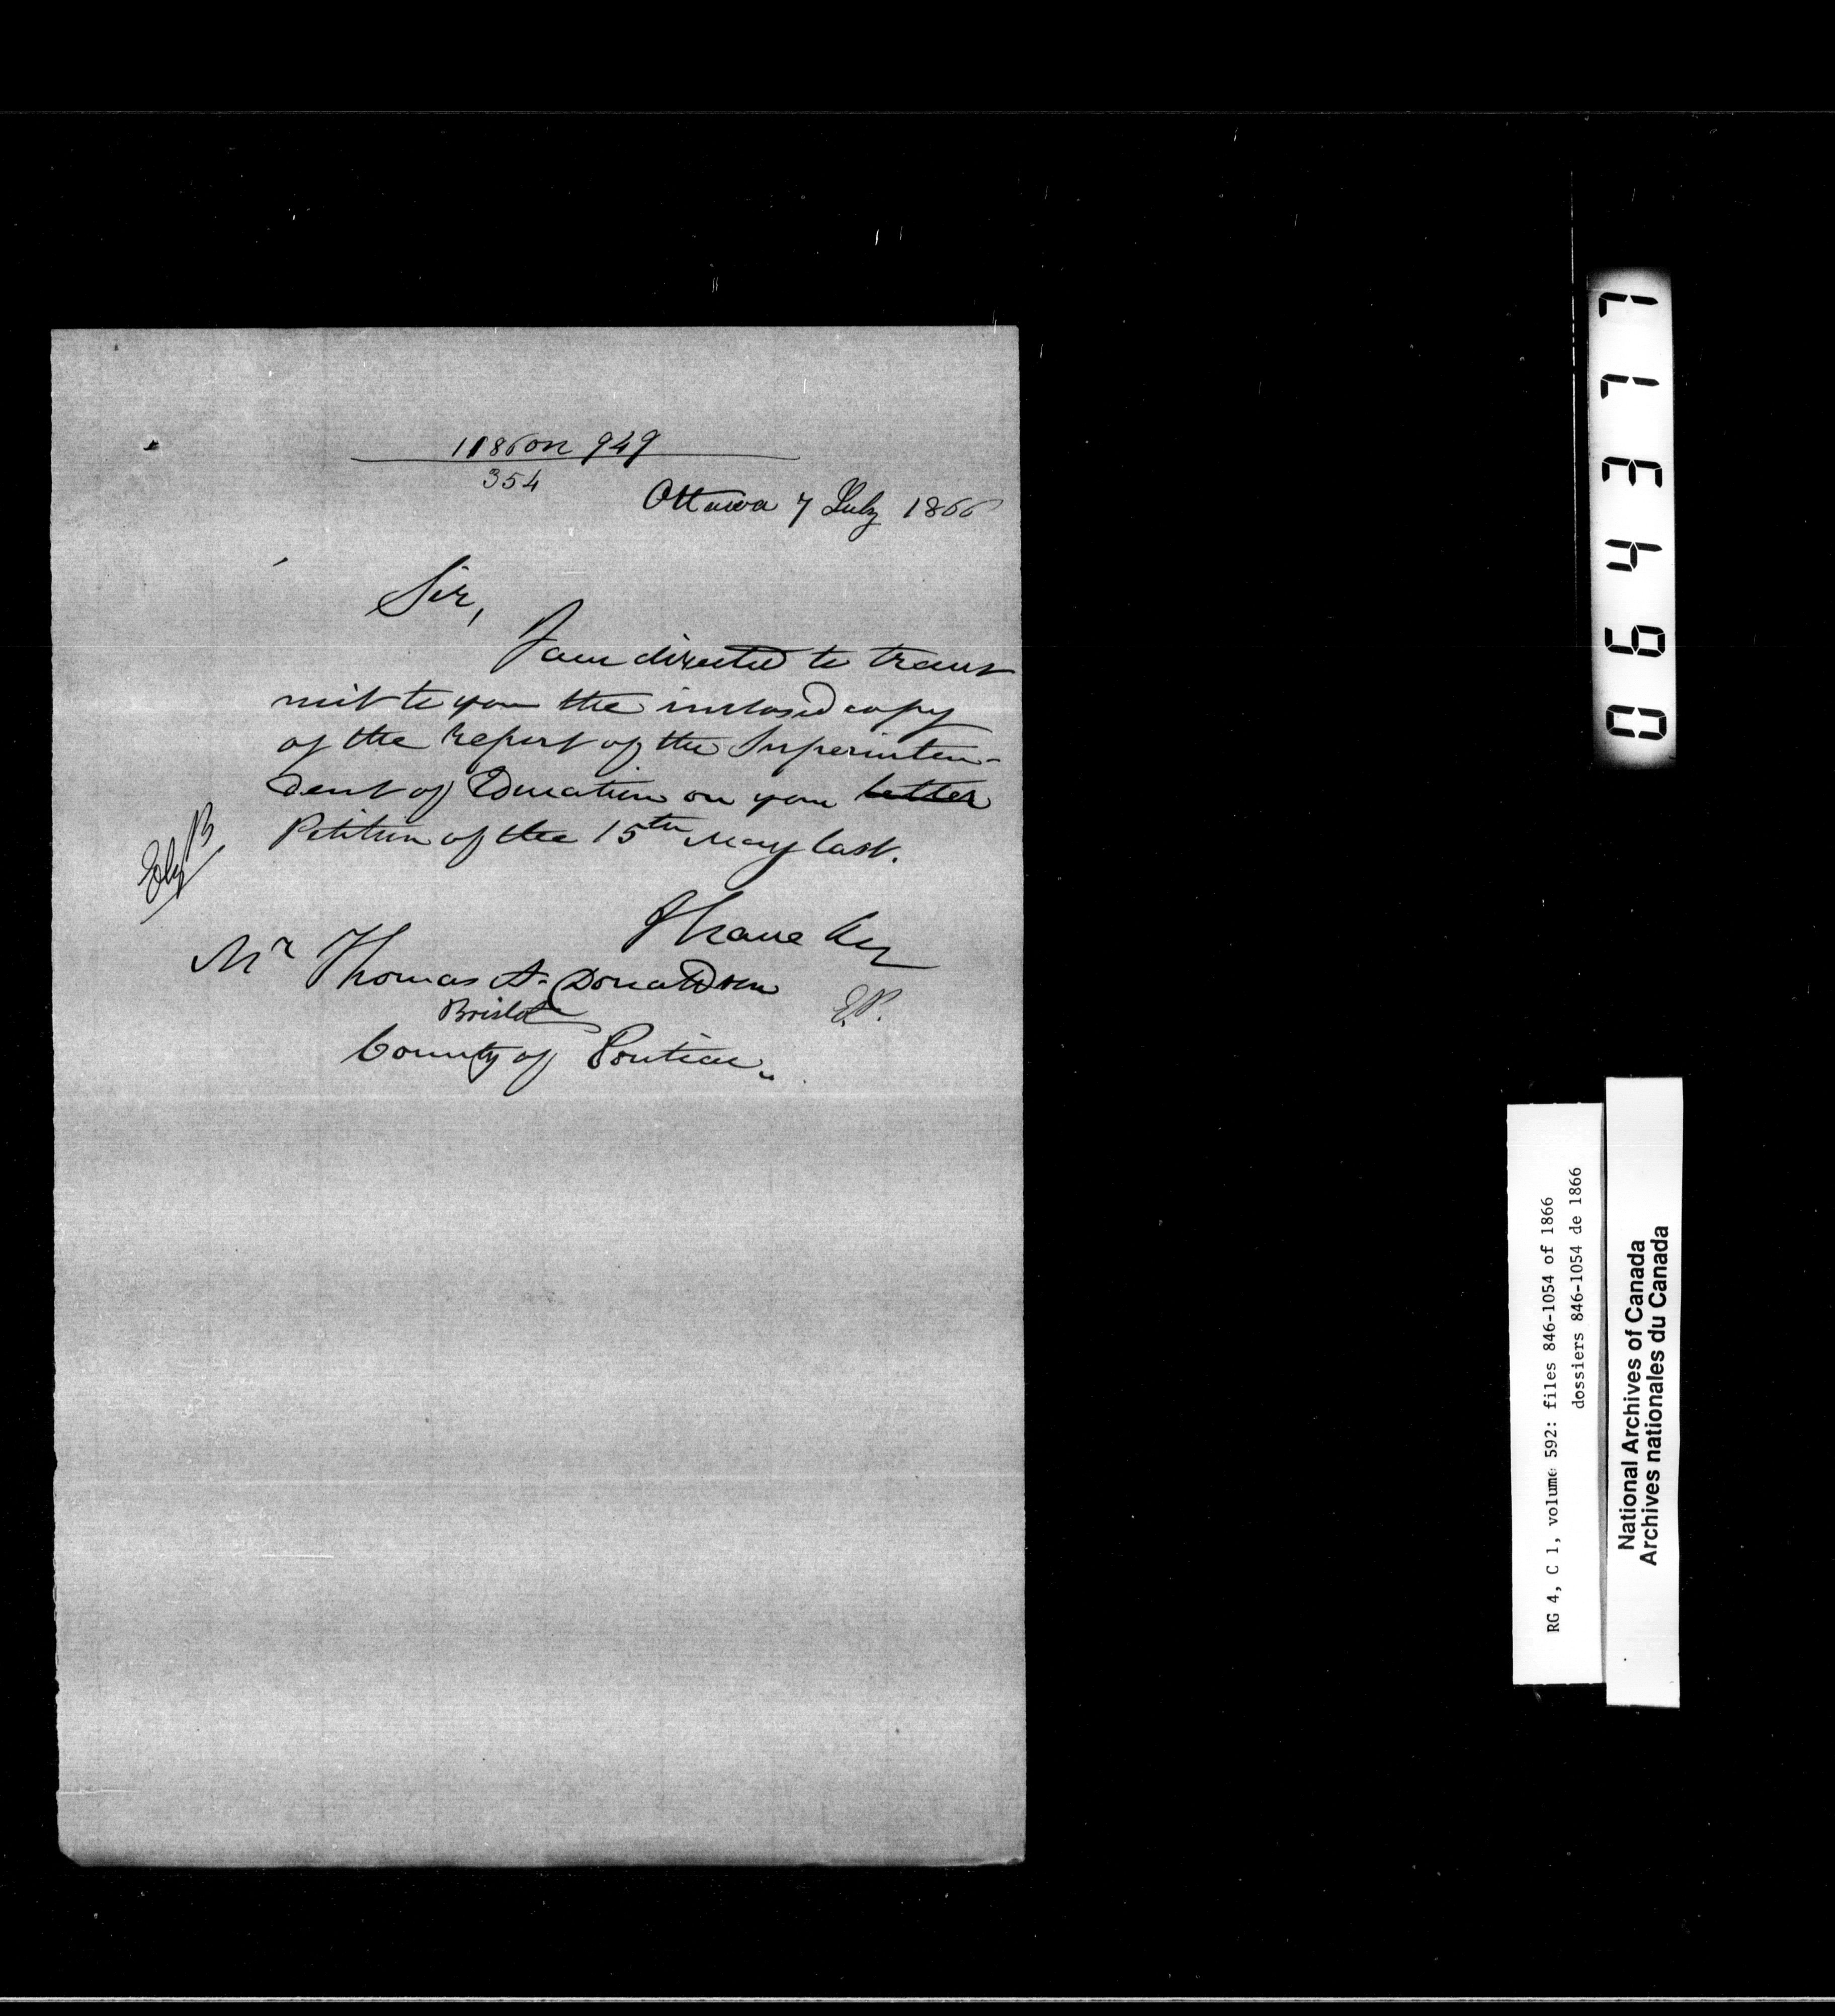 1186 on 949
354
Ottawa 7 July 1866
Sir,
I am directed to trans
mit to you the inclosed copy
of the Report of the Superinten-
dent of Education on your letter
Petition of the 15th May last.
I have &c
Mr Thomas A. Donaldson
Bristol
E.P.
County of Pontiac.
064377
RG 4, C 1, volume 592: files 846-1054 of 1866
dossiers 846-1054 de 1866
National Archives of Canada
Archives nationales du Canada